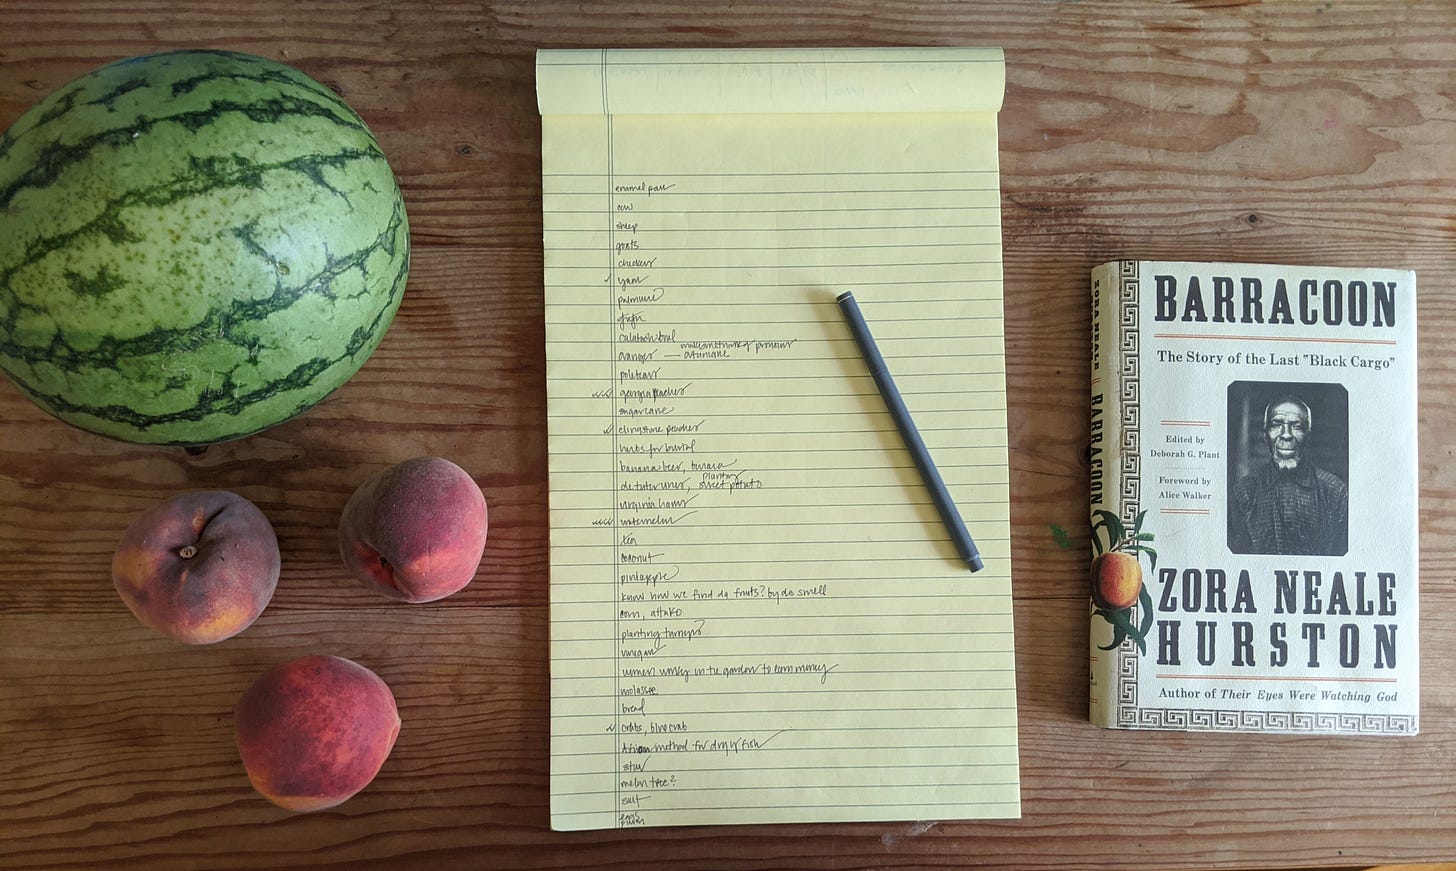 enamel pan
cow
sheep
goats
chicken
yam
palm wine
calabash bowl
oranges —
georgia peaches
sugarcane
clingstone peaches
herbs for burial
banana beer, banana
sweet potato
virginia hams
watermelon
tea
coconut
pineapple
know how we find da fruits? by de smell
corn, attako
planting turnips
vinegar
women working in the garden to earn money
molasses
bread
crabs, blue crab
African method for drying fish
stew
melon tree?
salt
ZORA NEALE
BARRACOON
BARRACOON
The Story of the Last "Black Cargo"
Edited by
Deborah G. Plant
Foreword by
Alice Walker
ZORA NEALE
HURSTON
Author of Their Eyes Were Watching God